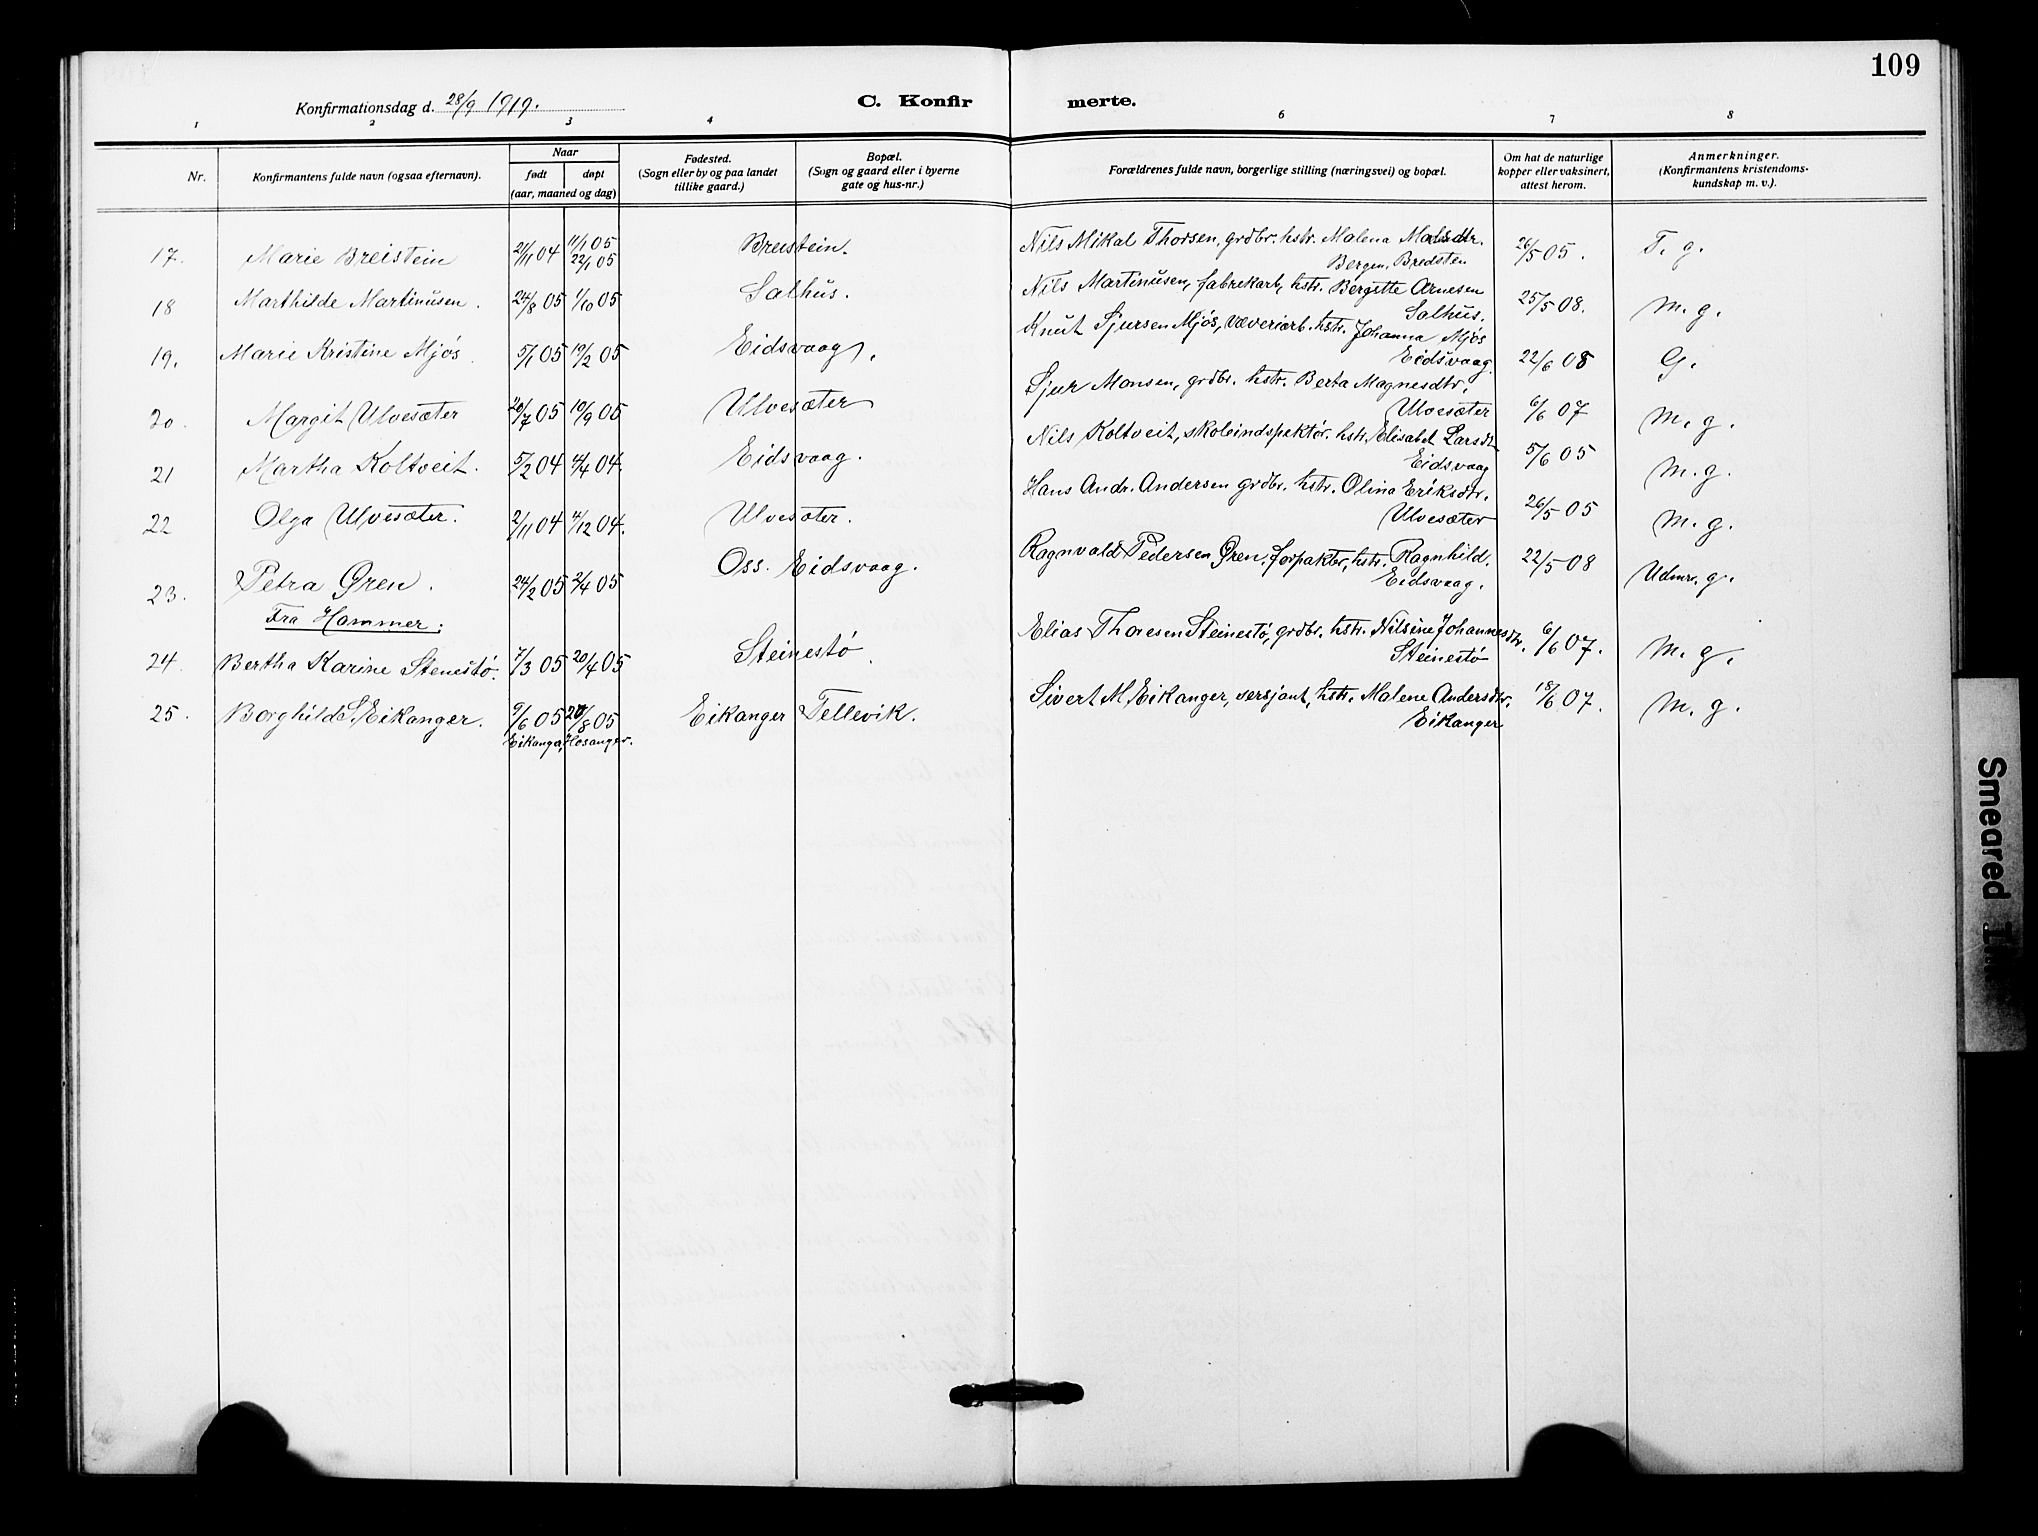 109
Konfirmationsdag d. 28/9 1919.
C. Konfir merte.
1 2 3 4 6 7 8
Nr.
Konfirmantens fulde navn (ogsaa efternavn).
Naar
født døpt
(aar, maaned og dag)
Fødested.
(Sogn eller by og paa landet
tillike gaard.)
Bopæl.
(Sogn og gaard eller i byerne
gate og hus-nr.)
Forældrenes fulde navn, borgerlige stilling (næringsvei) og bopæl.
Om hat de naturlige
kopper eller vaksinert,
attest herom.
Anmerkninger.
(Konfirmantens kristendoms-
kundskap m. v.).
17. Marie Breistein 21/11 04 11/1 05 22/1 05 Breistein. Nils Mikal Thorsen, grdbr. hstr. Malena 26/5 05. T. g.
Bergen, Bredsten
18 Marthilde Martinusen. 24/8 05 1/10 05 Salhus. Nils Martinusen, fabrekarb, hstr. Bergitte Arnesen 25/5 08. M. g.
Salhus.
19. Marie Kristine Mjøs. 5/1 05 19/2 05 Eidsvaag. Knut Sjursen Mjøs, væveriarb. hstr. Johanna Mjøs 22/6 08 G.
Eidsvaag.
20. Margit Ulvesæter 20/7 05 10/9 05 Ulvesæter Sjur Monsen, grdbr. hstr. Berta Magnesdtr. 6/6 07 M. g.
Ulvesæter
21 Martha Koltveit. 5/2 04 4/4 04. Eidsvaag. Nils Koltveit, skoleindspektør. hstr. Elisabet Larsdt 5/6 05 M. g.
Eidsvaag
22 Olga Ulvesæter. 2/11 04 4/12 04. Ulvesæter. Hans Andr. Andersen grdbr. hstr. Olina Eriksdtr. 26/5 05 M. g.
Ulvesæter
23. Petra Øren. 24/2 05 2/4 05 Oss. Eidsvaag. Ragnvald Pedersen Øren, forpakter, hstr. Ragnhild. 22/5 08 Udmr. g.
Eidsvaag.
Fra Hammer:
24. Bertha Karine Stenestø. 7/3 05 20/4 05 Steinestø. Elias Thoresen Steinestø, grdbr. hstr. Nilsine Johannesdtr. 6/6 07. M. g.
Steinestø
25. Borghild S. Eikanger. 9/6 05 20/8 05 Eikanger Tellevik. Sivert M. Eikanger, versjant, hstr. Malene Andersdtr. 18/6 07. M. g.
Eikanger, Hosanger. Eikanger
Smeared